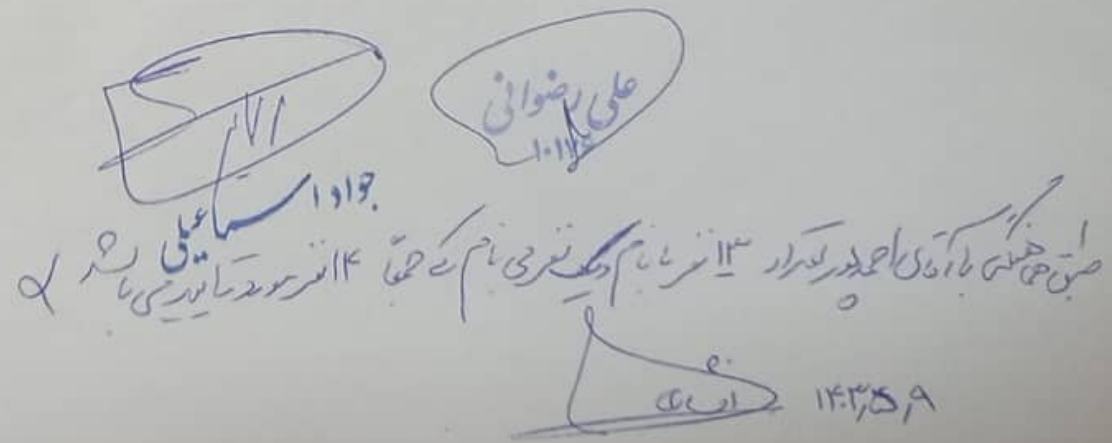 علی رضوانی
جواد اسماعیلی
طبق هماهنگی با آقای احمدپور تعداد ۱۳ نفر با نام و یک نفر بی نام که جمعاً ۱۴ نفر مورد تایید می باشد